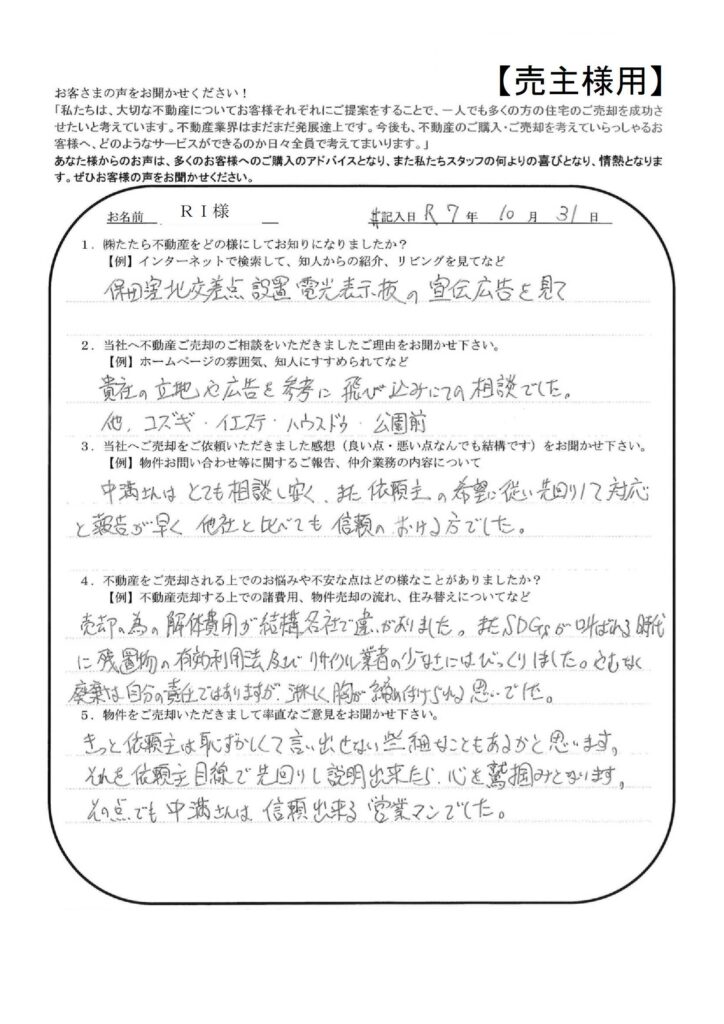 【売主様用】
お客さまの声をお聞かせください！
「私たちは、大切な不動産についてお客様それぞれにご提案をすることで、一人でも多くの方の住宅のご売却を成功さ
せたいと考えています。不動産業界はまだまだ発展途上です。今後も、不動産のご購入・ご売却を考えていらっしゃるお
客様へ、どのようなサービスができるのか日々全員で考えてまいります。」
あなた様からのお声は、多くのお客様へのご購入のアドバイスとなり、また私たちスタッフの何よりの喜びとなり、情熱となりま
す。ぜひお客様の声をお聞かせください。
お名前 ＲＩ様 記入日 R 7 年 10 月 31 日
１．㈱たたら不動産をどの様にしてお知りになりましたか？
【例】インターネットで検索して、知人からの紹介、リビングを見てなど
保田窪北交差点設置電光表示板の宣伝広告を見て
２．当社へ不動産ご売却のご相談をいただきましたご理由をお聞かせ下さい。
【例】ホームページの雰囲気、知人にすすめられてなど
貴社の立地や広告を参考に飛び込みにての相談でした。
他、コスギ・イエステ・ハウスドゥ・公園前
３．当社へご売却をご依頼いただきました感想（良い点・悪い点なんでも結構です）をお聞かせ下さい。
【例】物件お問い合わせ等に関するご報告、仲介業務の内容について
中満さんはとても相談し安く、また依頼主の希望に従い先回りして対応
と報告が早く他社と比べても信頼のおける方でした。
４．不動産をご売却される上でのお悩みや不安な点はどの様なことがありましたか？
【例】不動産売却する上での諸費用、物件売却の流れ、住み替えについてなど
売却の為の解体費用が結構各社で違いがありました。またSDGsが叫ばれる時代
に残置物の有効利用法及びリサイクル業者の少なさにはびっくりしました。やむなく
廃棄は自分の責任ではありますが、淋しく胸が締め付けられる思いでした。
５．物件をご売却いただきまして率直なご意見をお聞かせ下さい。
きっと依頼主は恥ずかしくて言い出せない些細なこともあるかと思います。
それを依頼主目線で先回りし説明出来たら、心を鷲掴みとなります。
その点でも中満さんは信頼出来る営業マンでした。